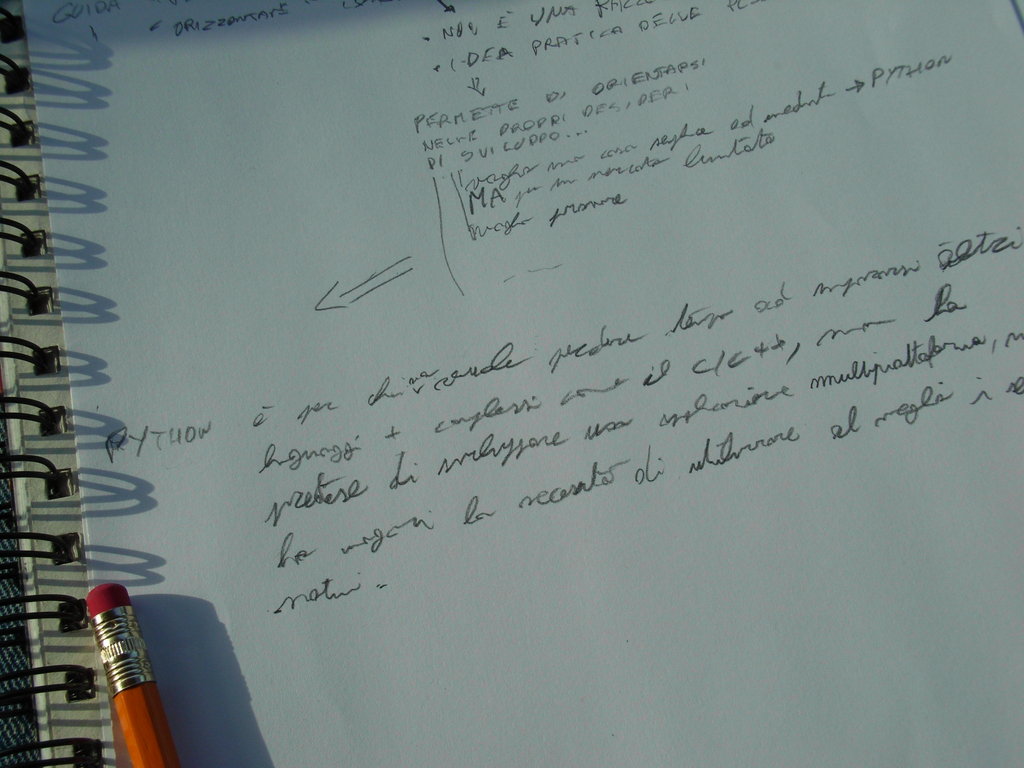 GUIDA
ORIZZONTARE
• NON È UNA
• IDEA PRATICA DELLE
PERMETTE DI ORIENTARSI
NELLE PROPRI DESIDERI
DI SVILUPPO...
voglio una cosa ad → PYTHON
MA per un mercato limitato
voglio
PYTHON è per chi non vuole perdere tempo ad impararsi altri
linguaggi + complessi come il C/C++, non ha
pretese di sviluppare una applicazione multipiattaforma,
ha magari la necessità di utilizzare al meglio i
nativi.